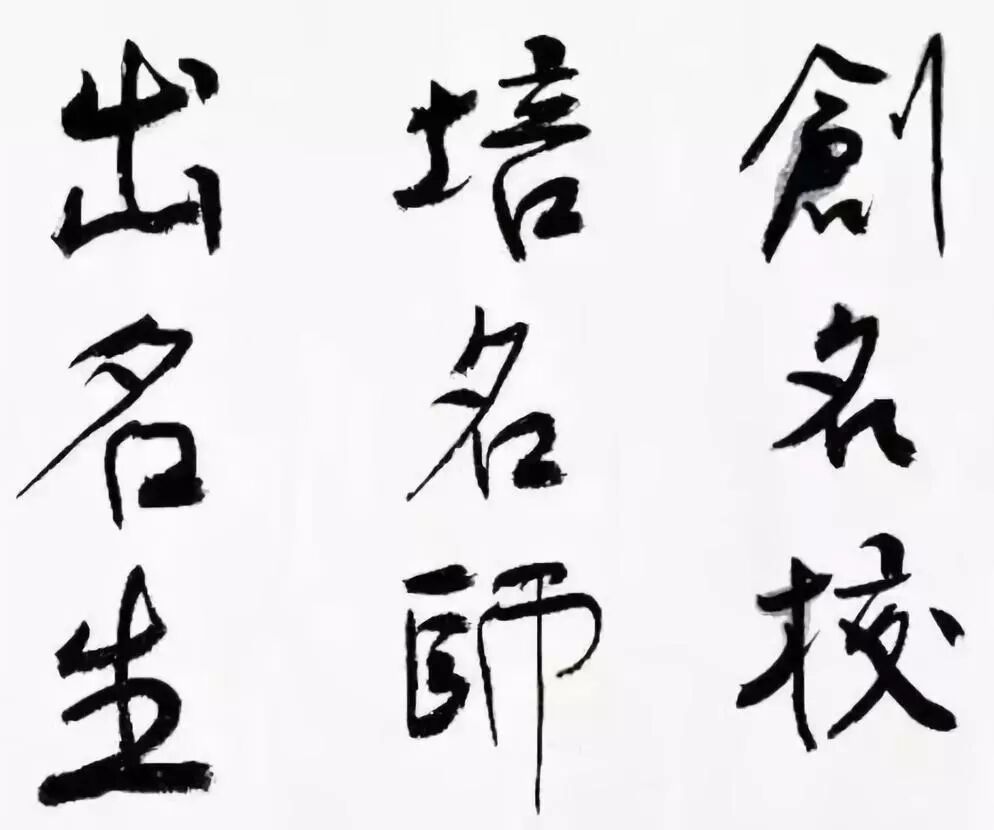 創名校
培名師
出名生